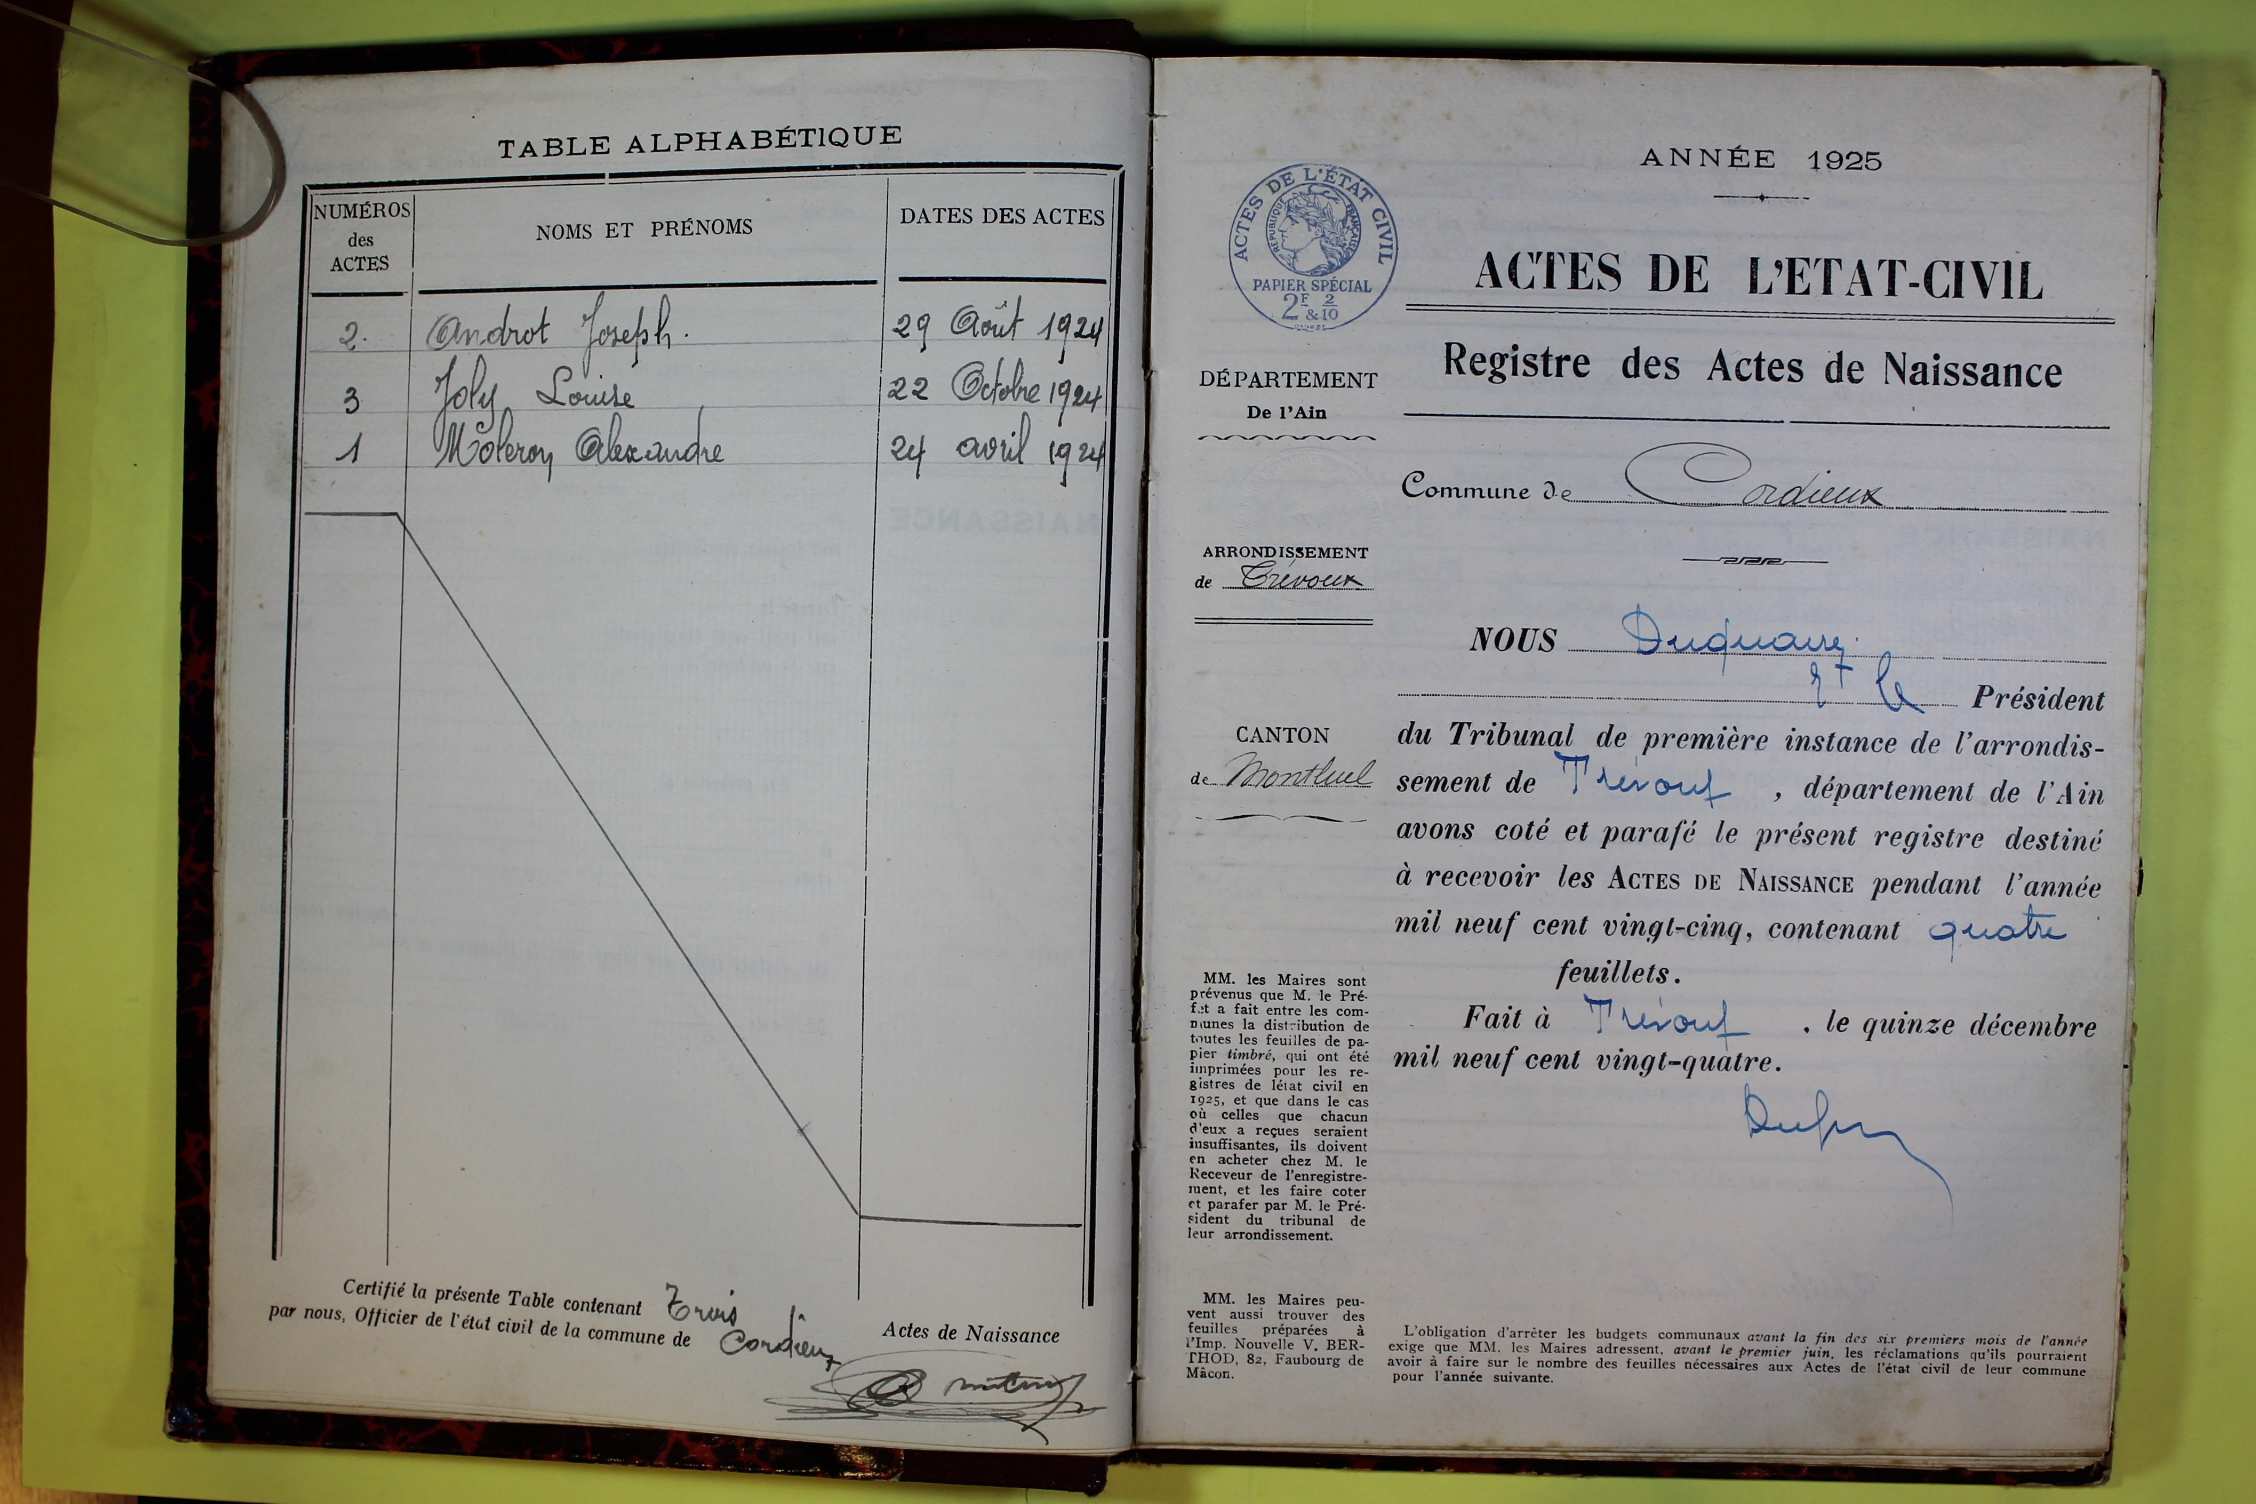 TABLE ALPHABÉTIQUE
NUMÉROS
des
ACTES
NOMS ET PRÉNOMS
DATES DES ACTES
2. Androt Joseph. 29 Août 1924
3 Joly Louise 22 Octobre 1924
1 Moleron Alexandre 24 avril 1924
Certifié la présente Table contenant Trois
Actes de Naissance
par nous, Officier de l'état civil de la commune de Cordieux
ANNÉE 1925
ACTES DE L'ÉTAT CIVIL
RÉPUBLIQUE FRANÇAISE
PAPIER SPÉCIAL
2F 2
& 10
ACTES DE L'ETAT-CIVIL
Registre des Actes de Naissance
DÉPARTEMENT
De l'Ain
Commune de Cordieux
ARRONDISSEMENT
de Trévoux
CANTON
de Montluel
NOUS Duquaire
Président
du Tribunal de première instance de l'arrondis-
sement de Trévoux , département de l'Ain
avons coté et parafé le présent registre destiné
à recevoir les ACTES DE NAISSANCE pendant l'année
mil neuf cent vingt-cinq, contenant quatre
feuillets.
Fait à Trévoux , le quinze décembre
mil neuf cent vingt-quatre.
MM. les Maires sont
prévenus que M. le Pré-
fet a fait entre les com-
munes la distribution de
toutes les feuilles de pa-
pier timbré, qui ont été
imprimées pour les re-
gistres de létat civil en
1925, et que dans le cas
où celles que chacun
d'eux a reçues seraient
insuffisantes, ils doivent
en acheter chez M. le
Receveur de l'enregistre-
ment, et les faire coter
et parafer par M. le Pré-
sident du tribunal de
leur arrondissement.
MM. les Maires peu-
vent aussi trouver des
feuilles préparées à
l'Imp. Nouvelle V. BER-
THOD, 82, Faubourg de
Mâcon.
L'obligation d'arrêter les budgets communaux avant la fin des six premiers mois de l'année
exige que MM. les Maires adressent, avant le premier juin, les réclamations qu'ils pourraient
avoir à faire sur le nombre des feuilles nécessaires aux Actes de l'état civil de leur commune
pour l'année suivante.